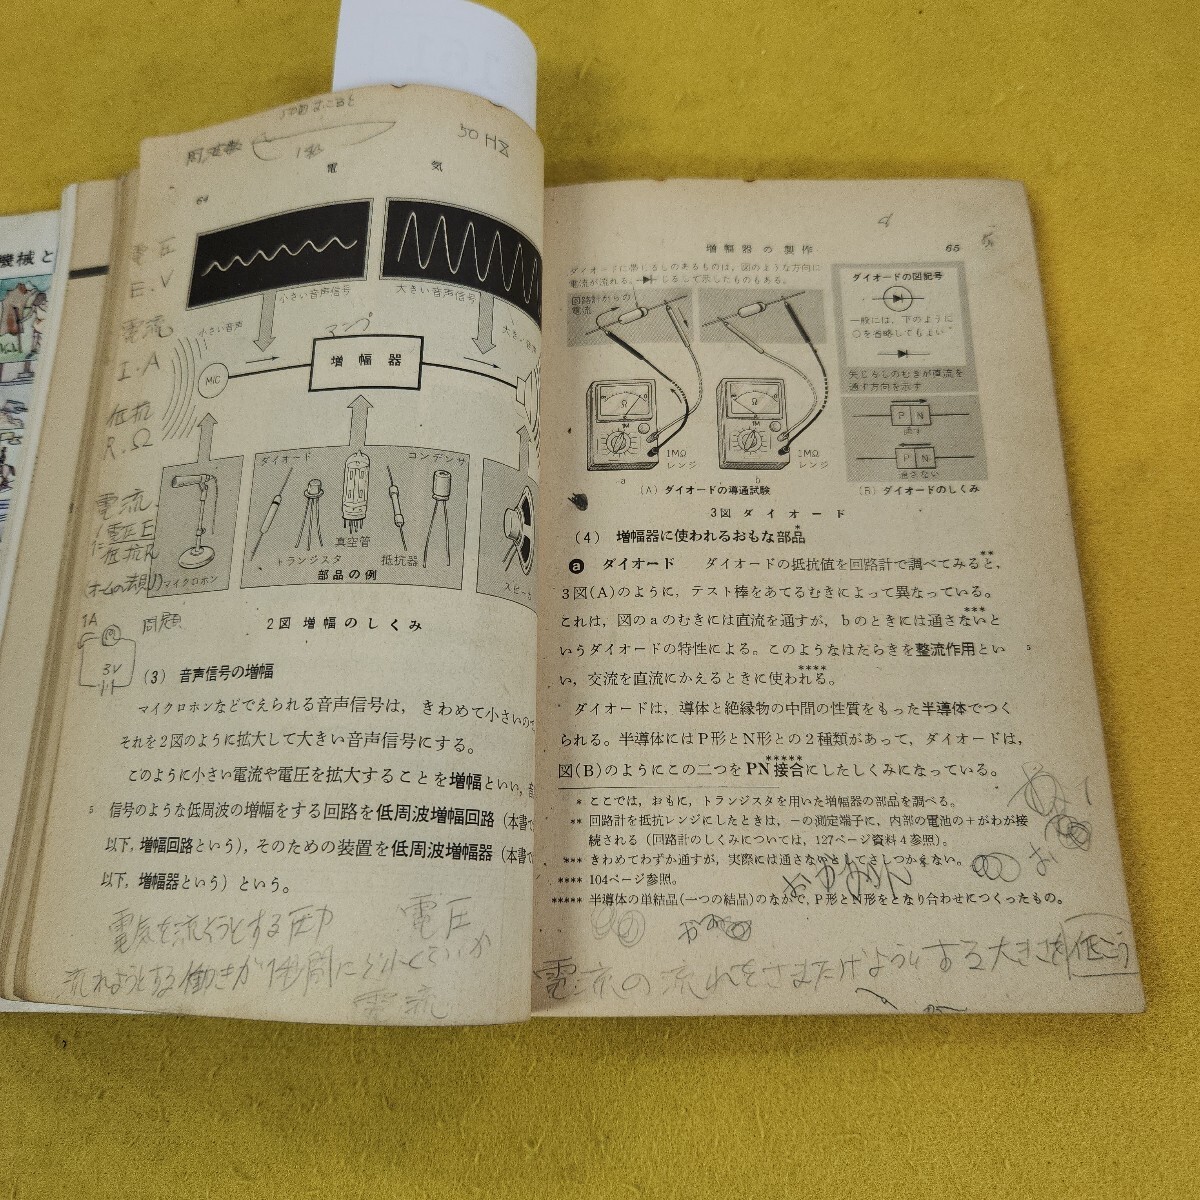 機械と
周波数
1秒
50 Hz
電気
64
電圧
E.V
電流
I.A
抵抗
R.Ω
小さい音声信号
大きい音声信号
小さい音声
アンプ
増幅器
MIC
ダイオード
コンデンサ
トランジスタ
真空管
抵抗器
マイクロホン
部品の例
スピー
1A
問題
3V
2図 増幅のしくみ
(3) 音声信号の増幅
マイクロホンなどでえられる音声信号は，きわめて小さいので
それを2図のように拡大して大きい音声信号にする。
このように小さい電流や電圧を拡大することを増幅といい，音
5 信号のような低周波の増幅をする回路を低周波増幅回路（本書で
以下，増幅回路という），そのための装置を低周波増幅器（本書で
以下，増幅器という）という。
電気を流そうとする圧力 電圧
電流
増幅器の製作 65
ダイオードに帯じるしのあるものは，図のような方向に
電流が流れる。じるしで示したものもある。
回路計からの
電流
Ω
1MΩ
レンジ
a
Ω
1MΩ
レンジ
b
(A) ダイオードの導通試験
ダイオードの図記号
一般には，下のように
○を省略してもよい
矢じるしのむきが直流を
通す方向を示す
P N
通す
P N
通さない
(B) ダイオードのしくみ
3図 ダイオード
(4) 増幅器に使われるおもな部品*
a ダイオード ダイオードの抵抗値を回路計で調べてみると，**
3図(A)のように，テスト棒をあてるむきによって異なっている。
これは，図のaのむきには直流を通すが，bのときには通さない***と
いうダイオードの特性による。このようなはたらきを整流作用とい 5
い，交流を直流にかえるときに使われる。****
ダイオードは，導体と絶縁物の中間の性質をもった半導体でつく
られる。半導体にはP形とN形との2種類があって，ダイオードは，
図(B)のようにこの二つをPN接合*****にしたしくみになっている。
* ここでは，おもに，トランジスタを用いた増幅器の部品を調べる。
** 回路計を抵抗レンジにしたときは，－の測定端子に，内部の電池の＋がわが接
続される（回路計のしくみについては，127ページ資料4参照）。
*** きわめてわずか通すが，実際には通さないとしてさしつかえない。
**** 104ページ参照。
***** 半導体の単結晶(一つの結晶)のなかで，P形とN形をとなり合わせにつくったもの。
電流の流れをさまたげようとする大きさを低こう